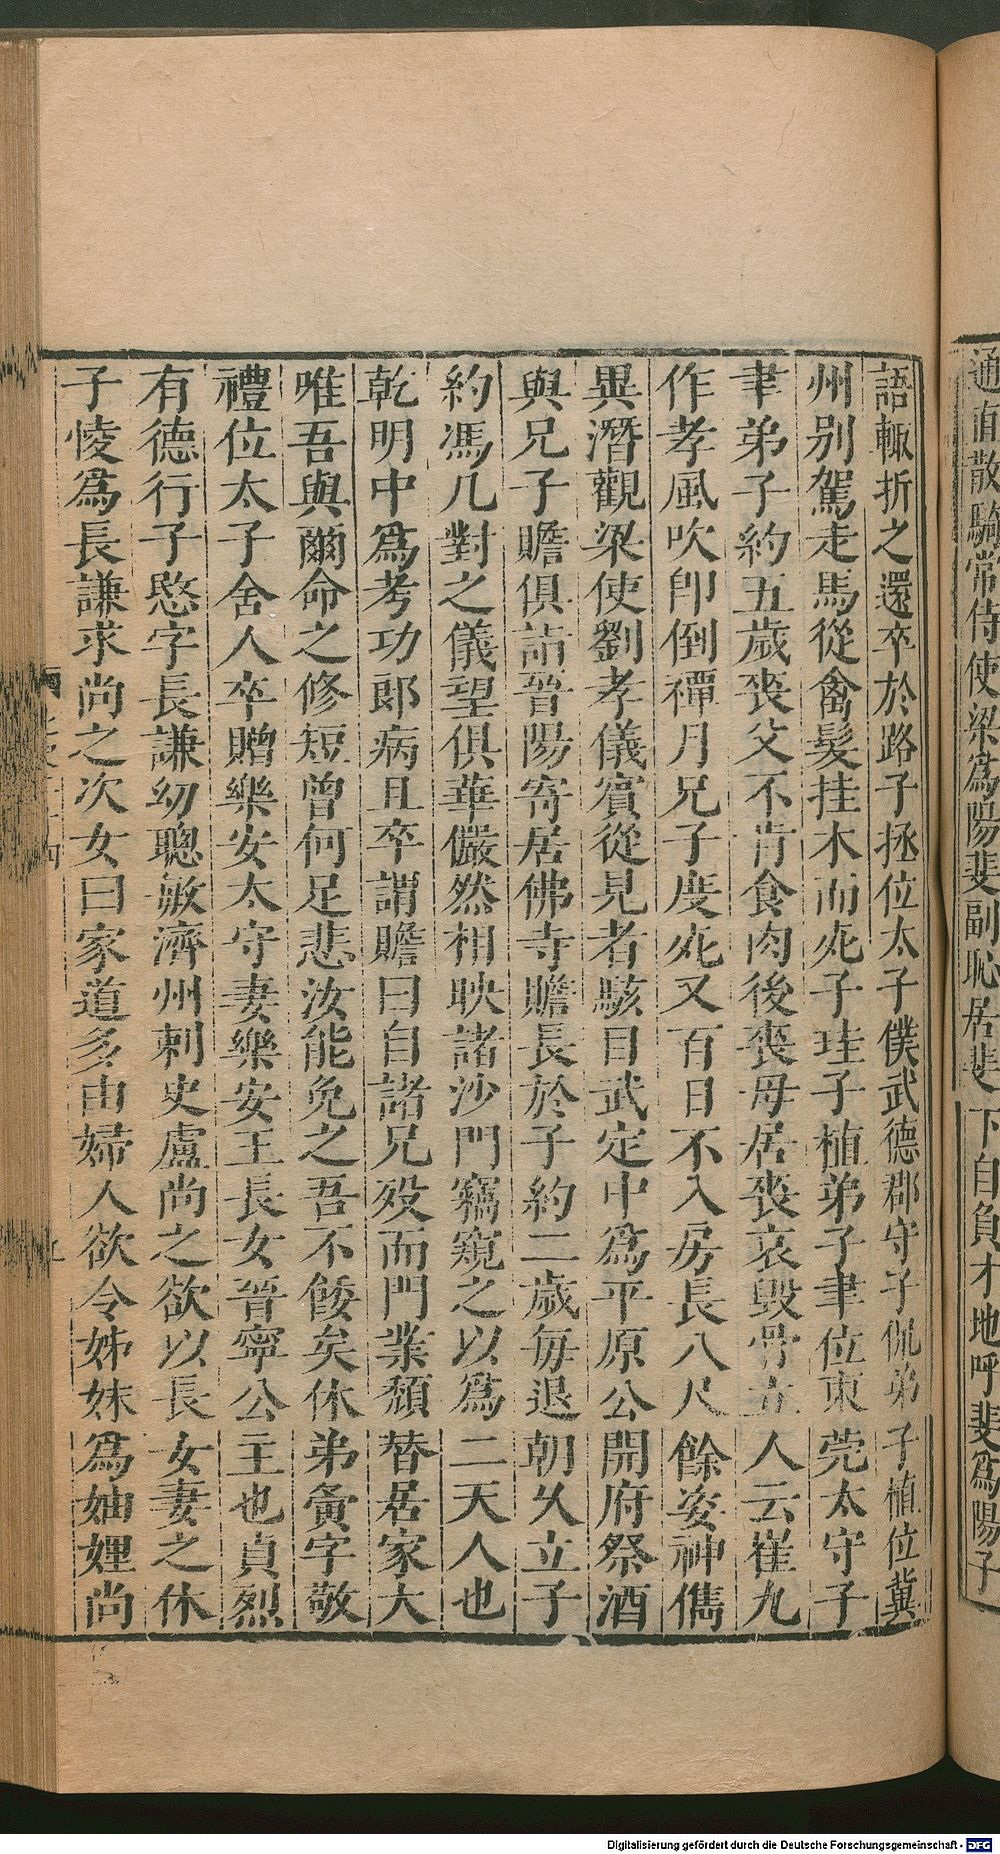 通直散騎常侍使梁爲陽斐副恥居斐下自負才地呼斐爲陽子
語輙折之還卒於路子拯位太子僕武德郡守子侃弟子植位冀
州別駕走馬從禽髮挂木而死子珪子植弟子聿位東莞太守子
聿弟子約五歲喪父不肯食肉後喪母居喪哀毁骨立人云崔九
作孝風吹卽倒禫月兄子度死又百日不入房長八尺餘姿神儁
異潛觀梁使劉孝儀賓從見者駭目武定中爲平原公開府祭酒
與兄子贍俱詣晉陽寄居佛寺贍長於子約二歲每退朝久立子
約馮几對之儀望俱華儼然相映諸沙門竊窺之以爲二天人也
乾明中爲考功郎病且卒謂贍曰自諸兄歿而門業頹替居家大
唯吾與爾命之修短曾何足悲汝能免之吾不餒矣休弟夤字敬
禮位太子舍人卒贈樂安太守妻樂安王長女晉寧公主也貞烈
有德行子愍字長謙幼聰敏濟州刺史盧尚之欲以長女妻之休
子㥄爲長謙求尚之次女曰家道多由婦人欲令姊妹爲妯娌尚
Digitalisierung gefördert durch die Deutsche Forschungsgemeinschaft - DFG